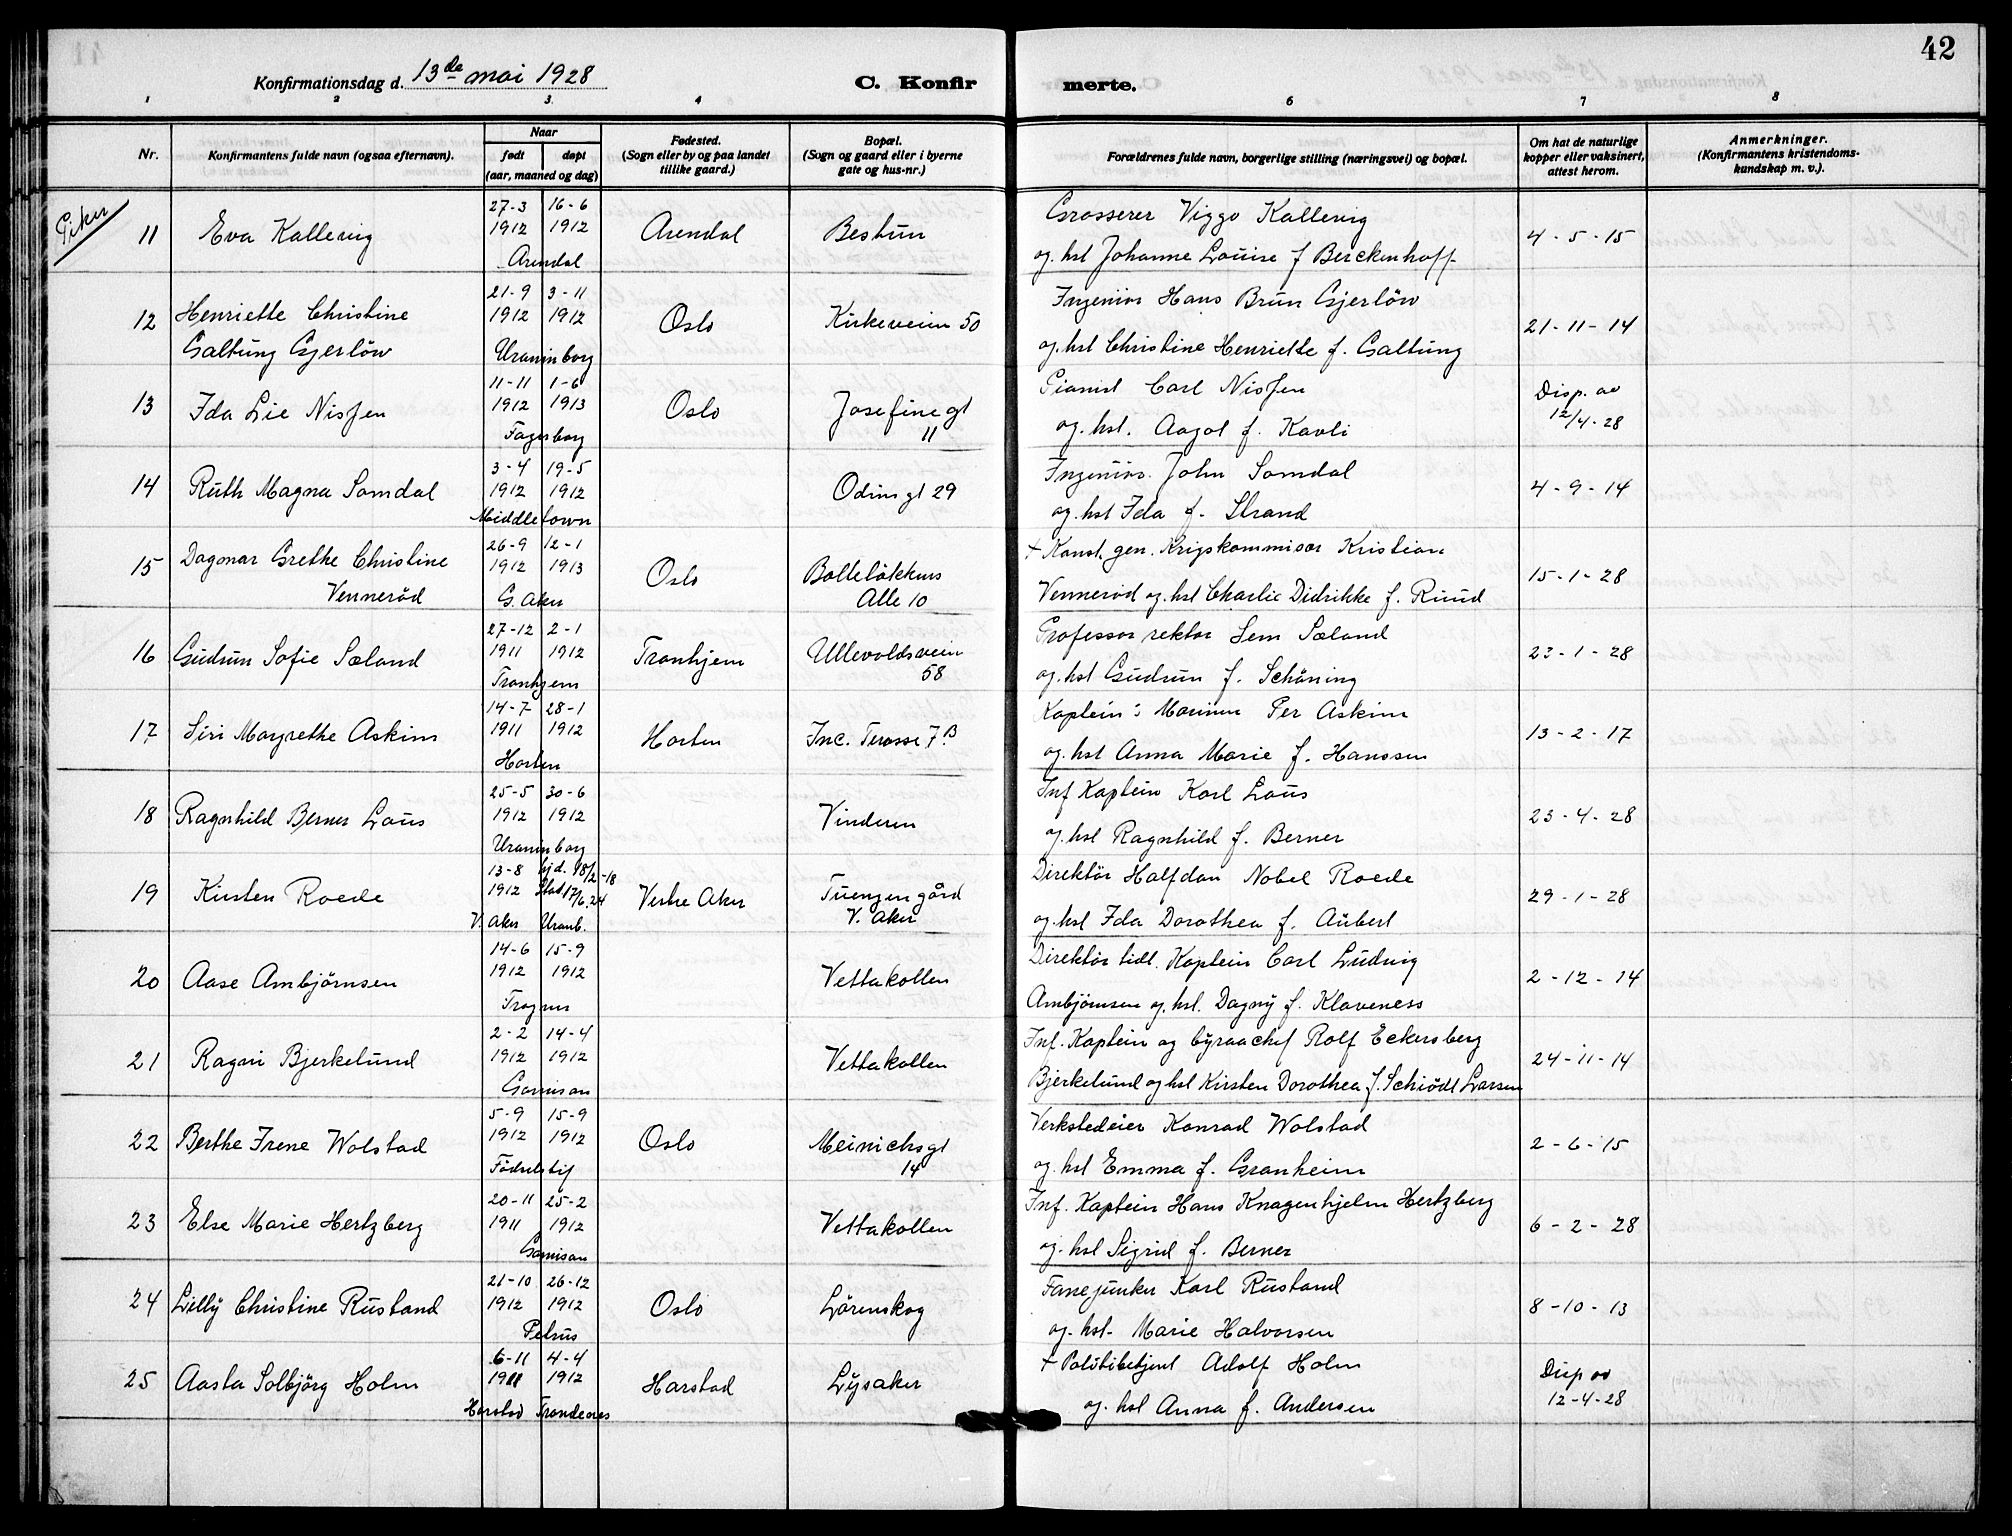 42
Konfirmationsdag d. 13de mai 1928
C. Konfirmerte.
1 2 3. 4 6 7 8
Nr.
Konfirmantens fulde navn (ogsaa efternavn).
Naar
født døpt
(aar, maaned og dag)
Fødested.
(Sogn eller by og paa landet
tillike gaard.)
Bopæl.
(Sogn og gaard eller i byerne
gate og hus-nr.)
Forældrenes fulde navn, borgerlige stilling (næringsvei) og bopæl.
Om hat de naturlige
kopper eller vaksinert,
attest herom.
Anmerkninger.
(Konfirmantens kristendoms-
kundskap m. v.).
Piker
27-3 16-6 Grosserer Viggo Kallevig
11 Eva Kallevig 1912 1912 Arendal Bestun 4-5-15
Arendal og hst Johanne Louise f Berckenhoff
21-9 3-11 Ingeniør Hans Brun Gjerlöw
12 Henriette Christine 1912 1912 Oslo Kirkeveien 50 21-11-14
Galtung Gjerlöw Uranienborg og hst Christine Henriette f. Galtung
11-11 1-6 Pianist Carl Nissen Disp. av
13 Ida Lie Nissen 1912 1913 Oslo Josefinegt 12/4-28
Fagerborg 11 og hst. Aagot f. Kavli
3-4 19-5 Ingeniör John Somdal
14 Ruth Magna Somdal 1912 1912 Odinsgt 29 4-9-14
Middletown og hst Ida f. Strand
26-9 12-1 + Konst. gen. Krigskommisær Kristian
15 Dagmar Grethe Christine 1912 1913 Oslo Bolteløkkens 15-1-28
Venneröd G. Aker Alle 10 Venneröd og hst Charlie Didrikke f. Ruud
27-12 2-1 Professor rektor Sem Sæland
16 Gudrun Sofie Sæland 1911 1912 Tronhjem Ullevoldsveien 23-1-28
Tronhjem 58 og hst Gudrun f. Schöning
14-7 28-1 Kaptein i Marinen Per Askim
17 Siri Margrethe Askim 1911 1912 Horten Inc. Terasse 7B 13-2-17
Horten og hst Anna Marie f. Hanssen
25-5 30-6 Inf Kaptein Karl Lous
18 Ragnhild Berner Lous 1912 1912 Vinderen 23-4-28
Uranienborg og hst Ragnhild f. Berner
13-8 hjd. 18/2-18 Direktör Halfdan Nobel Roede
19 Kirsten Roede 1912 Stad 17/6.24 Vestre Aker Tuengen gård 29-1-28
V. Aker Uranb. V. Aker og hst Ida Dorothea f. Aubert
14-6 15-9 Direktör tidl. Kaptein Carl Ludvig
20 Aase Ambjörnsen 1912 1912 Vettakollen 2-12-14
Frogner Ambjörnsen og hst. Dagny f. Klaveness
2-2 14-4 Inf. Kaptein og byraachef Rolf Eckersberg
21 Ragni Bjerkelund 1912 1912 Vettakollen 24-11-14
Garnison Bjerkelund og hst Kirsten Dorothea f. Schiödt Larsen
5-9 15-9 Verkstedeier Konrad Wolstad
22 Berthe Irene Wolstad 1912 1912 Oslo Meinichsgt 2-6-15
Födselstif 14 og hst Emma f. Granheim
20-11 25-2 Inf. Kaptein Hans Knagenhjelm Hertzberg
23 Else Marie Hertzberg 1911 1912 Vettakollen 6-2-28
Garnison og hst Sigrid f. Berner
21-10 26-12 Fanejunker Karl Rustand
24 Lilly Christine Rustand 1912 1912 Oslo Lörenskog 8-10-13
Petrus og hst- Marie Halvorsen
6-11 4-4 + Politibetjent Adolf Holm Disp av
25 Aasta Solbjörg Holm 1911 1912 Harstad Lysaker 12-4-28
Harstad Trondenes og hst Anna f. Andersen